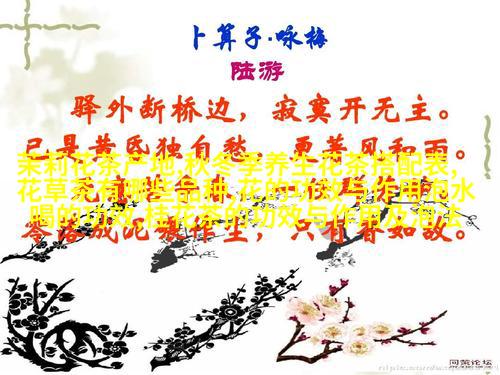 卜算子·咏梅
陆游
驿外断桥边，寂寞开无主。
已是黄昏独自愁，更著风和雨。
茉莉花茶产地,秋冬季养生花茶搭配表,
花草茶有哪些品种,花的功效与作用泡水
喝的功效,桂花茶的功效与作用及泡法
零落成泥碾作尘，只有香如故。
论坛